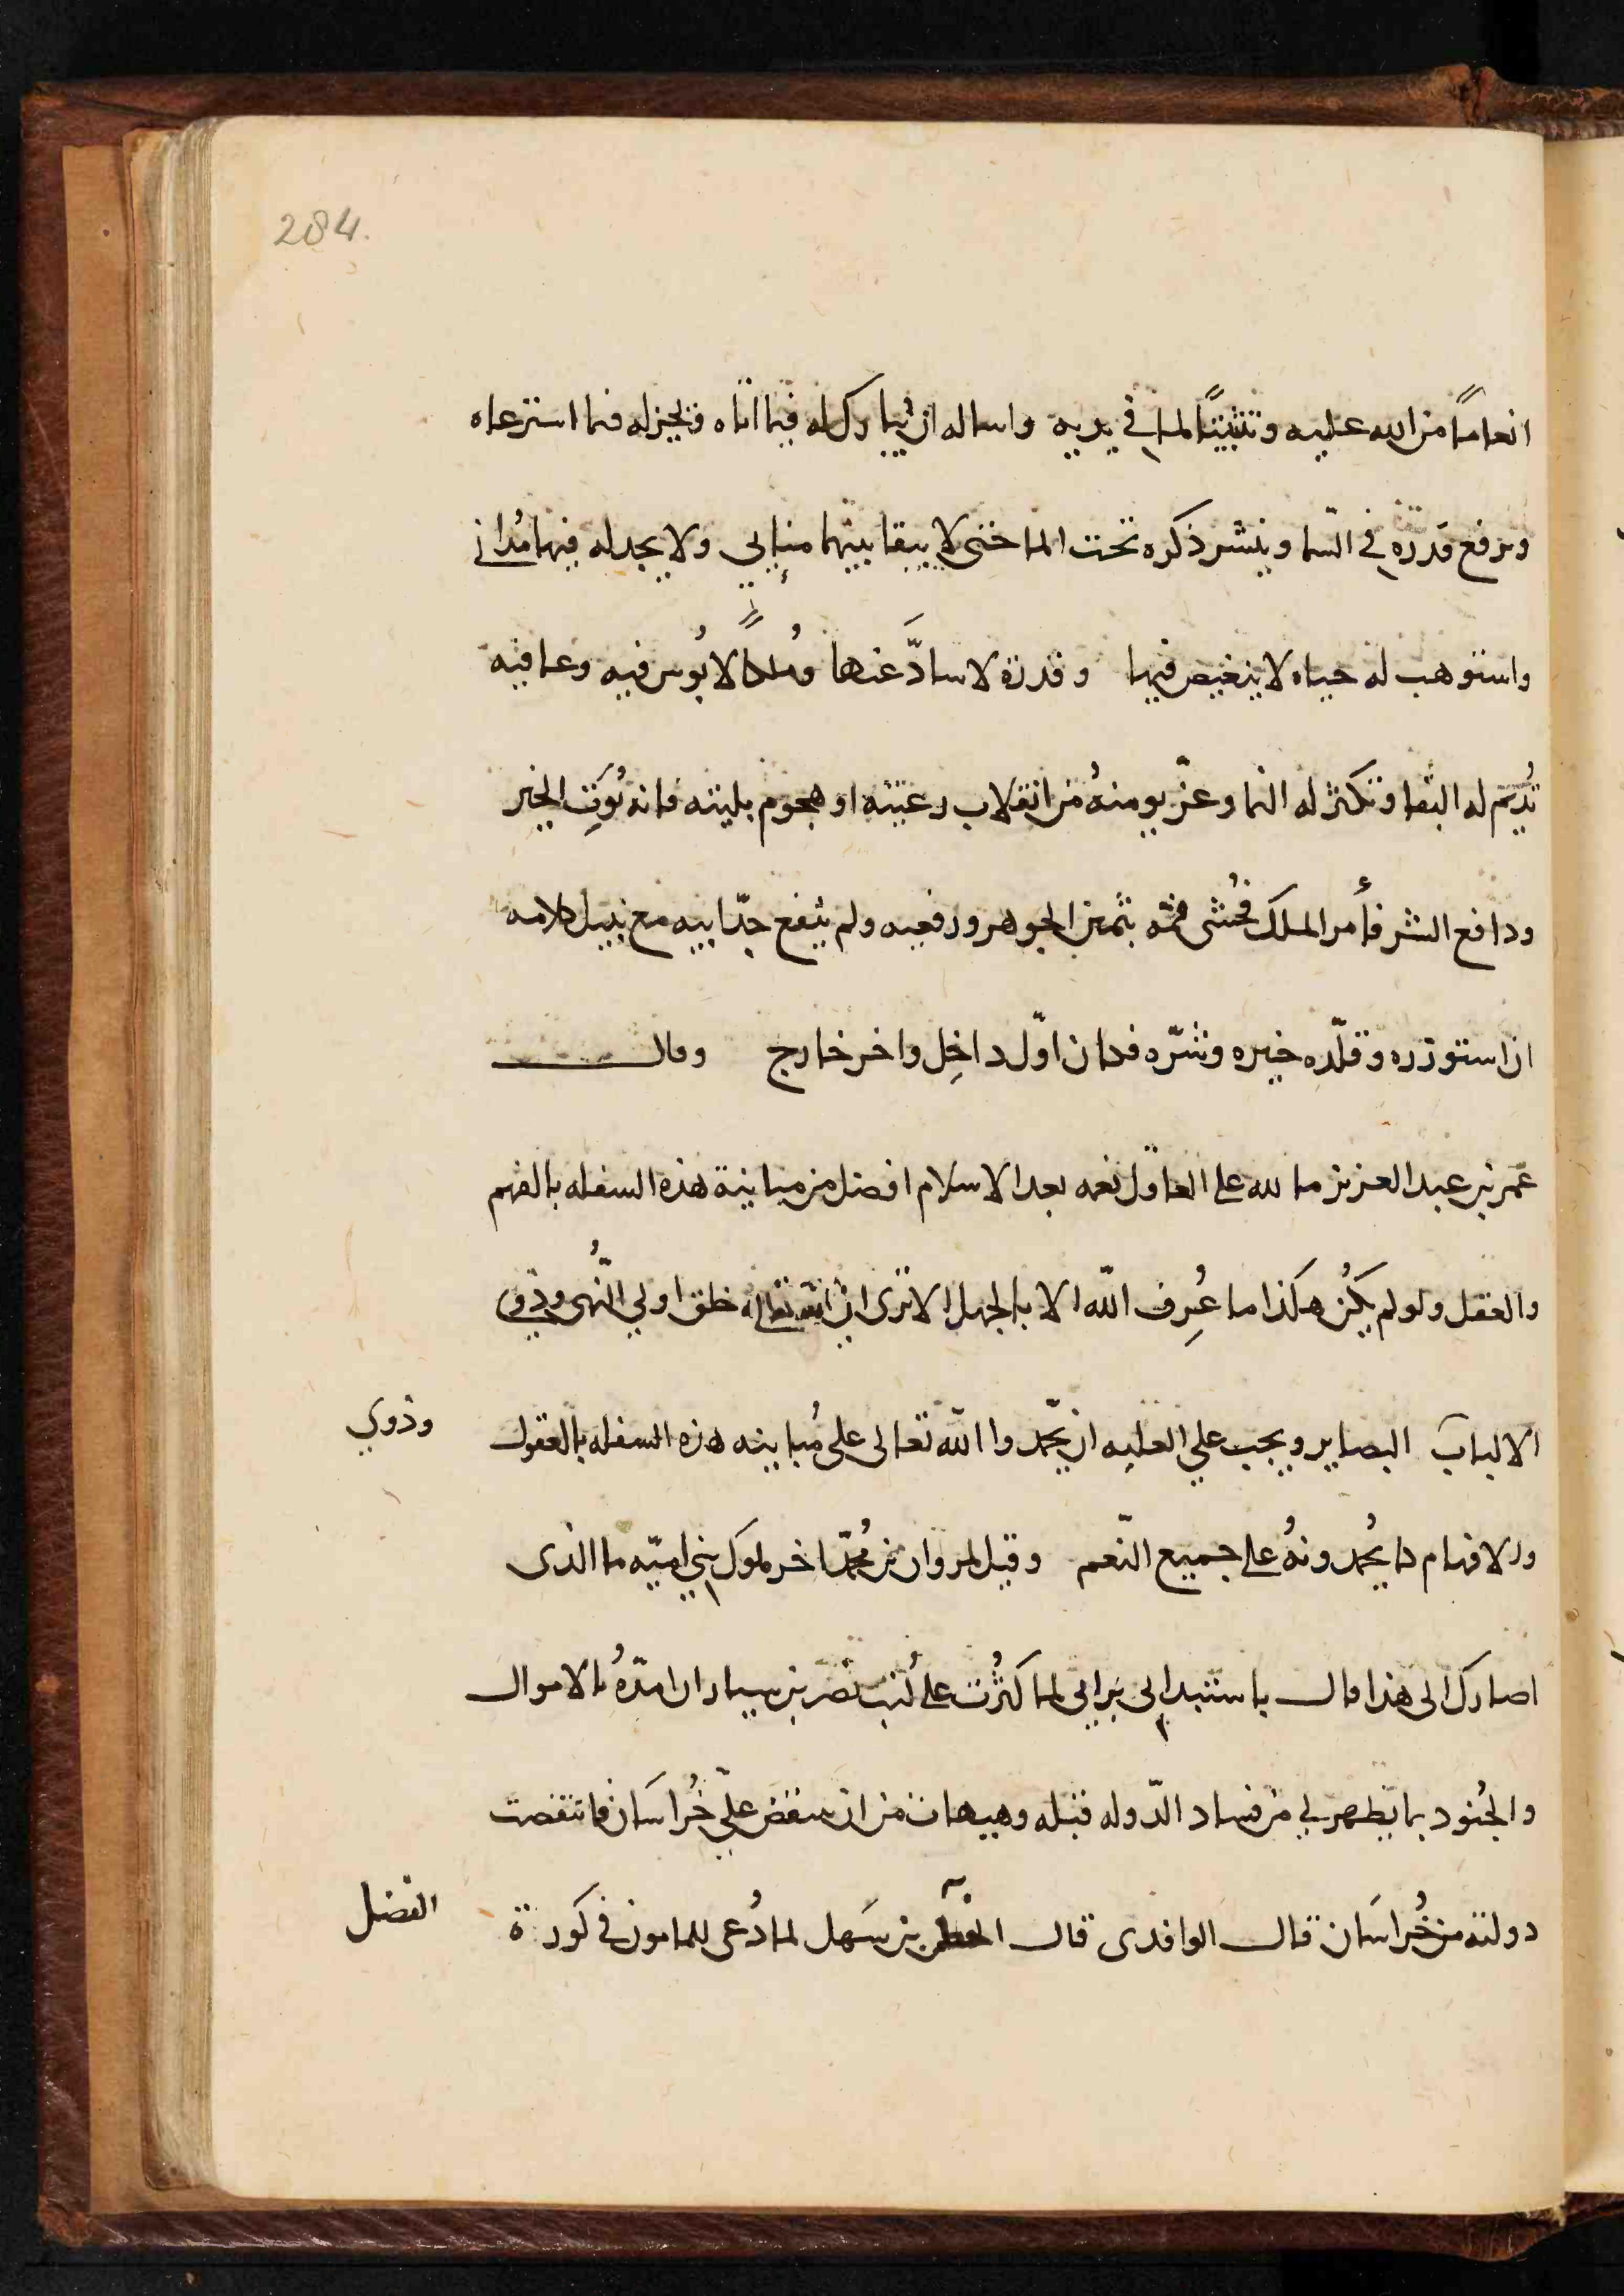 284.
انعامًا من الله عليه وتثبيتًا لما في يديه واساله ان يبارك له فيما اتاه ويخير له فيما استرعاه
ويرفع قدره في السّما وينشر ذكره تحت الما حتى لا يبقا بينهما منابي ولا يجد له فيهما مُداني
واستوهب له حياه لا ينغيص فيها وقدرة لا سادَّ عنها ومُلكًا لا بُوس فيه وعافيه
تُديم له البقا وتكثر له النما وعزّ يومنهُ من انقلاب رعيته او هجوم بليته فانه مُوتِ الخير
ودافع الشر فأمر الملك فحُشى فمّه بثمين الجوهر ورفعيه ولم ينفع حدّابيه مع نبيل كلامه
ان استوزره وقلّده خيره وشرّه فكان اوّل داخِل واخر خارج وقال
عمر بن عبد العزيز ما لله على العاقل نعمه بعد الاسلام افضل من مباينة هذه السفله بالفهم
والعقل ولو لم يكُن هكذا ما عُرِف اللّه الا بالجهل الا ترى ان الله تعالى خلق اولي النُّهى وذوي
الالباب البصاير ويجب علي العليه ان يحمّدوا اللّه تعالى على مُباينه هذه السفله بالعقول
وذوي
والافهام كما يُحمدونهُ على جميع النّعم وقيل لمروان بن مُحمّد اخر ملوك بني اميّه ما الذى
اصارك الى هذا قال باستبدادى برايى لما كثُرت على كُتب نصر بن سيار ان امدّهُ بالاموال
والجُنود بما يظهر لي من فساد الدّوله قبله وهيهات من ان ينتقض علىّ خُراسَان فانتقضت
دولته من خُراسَان قال الواقدى قال الفضل بن سَهل لما دُعى للمامون في كورة
الفضل